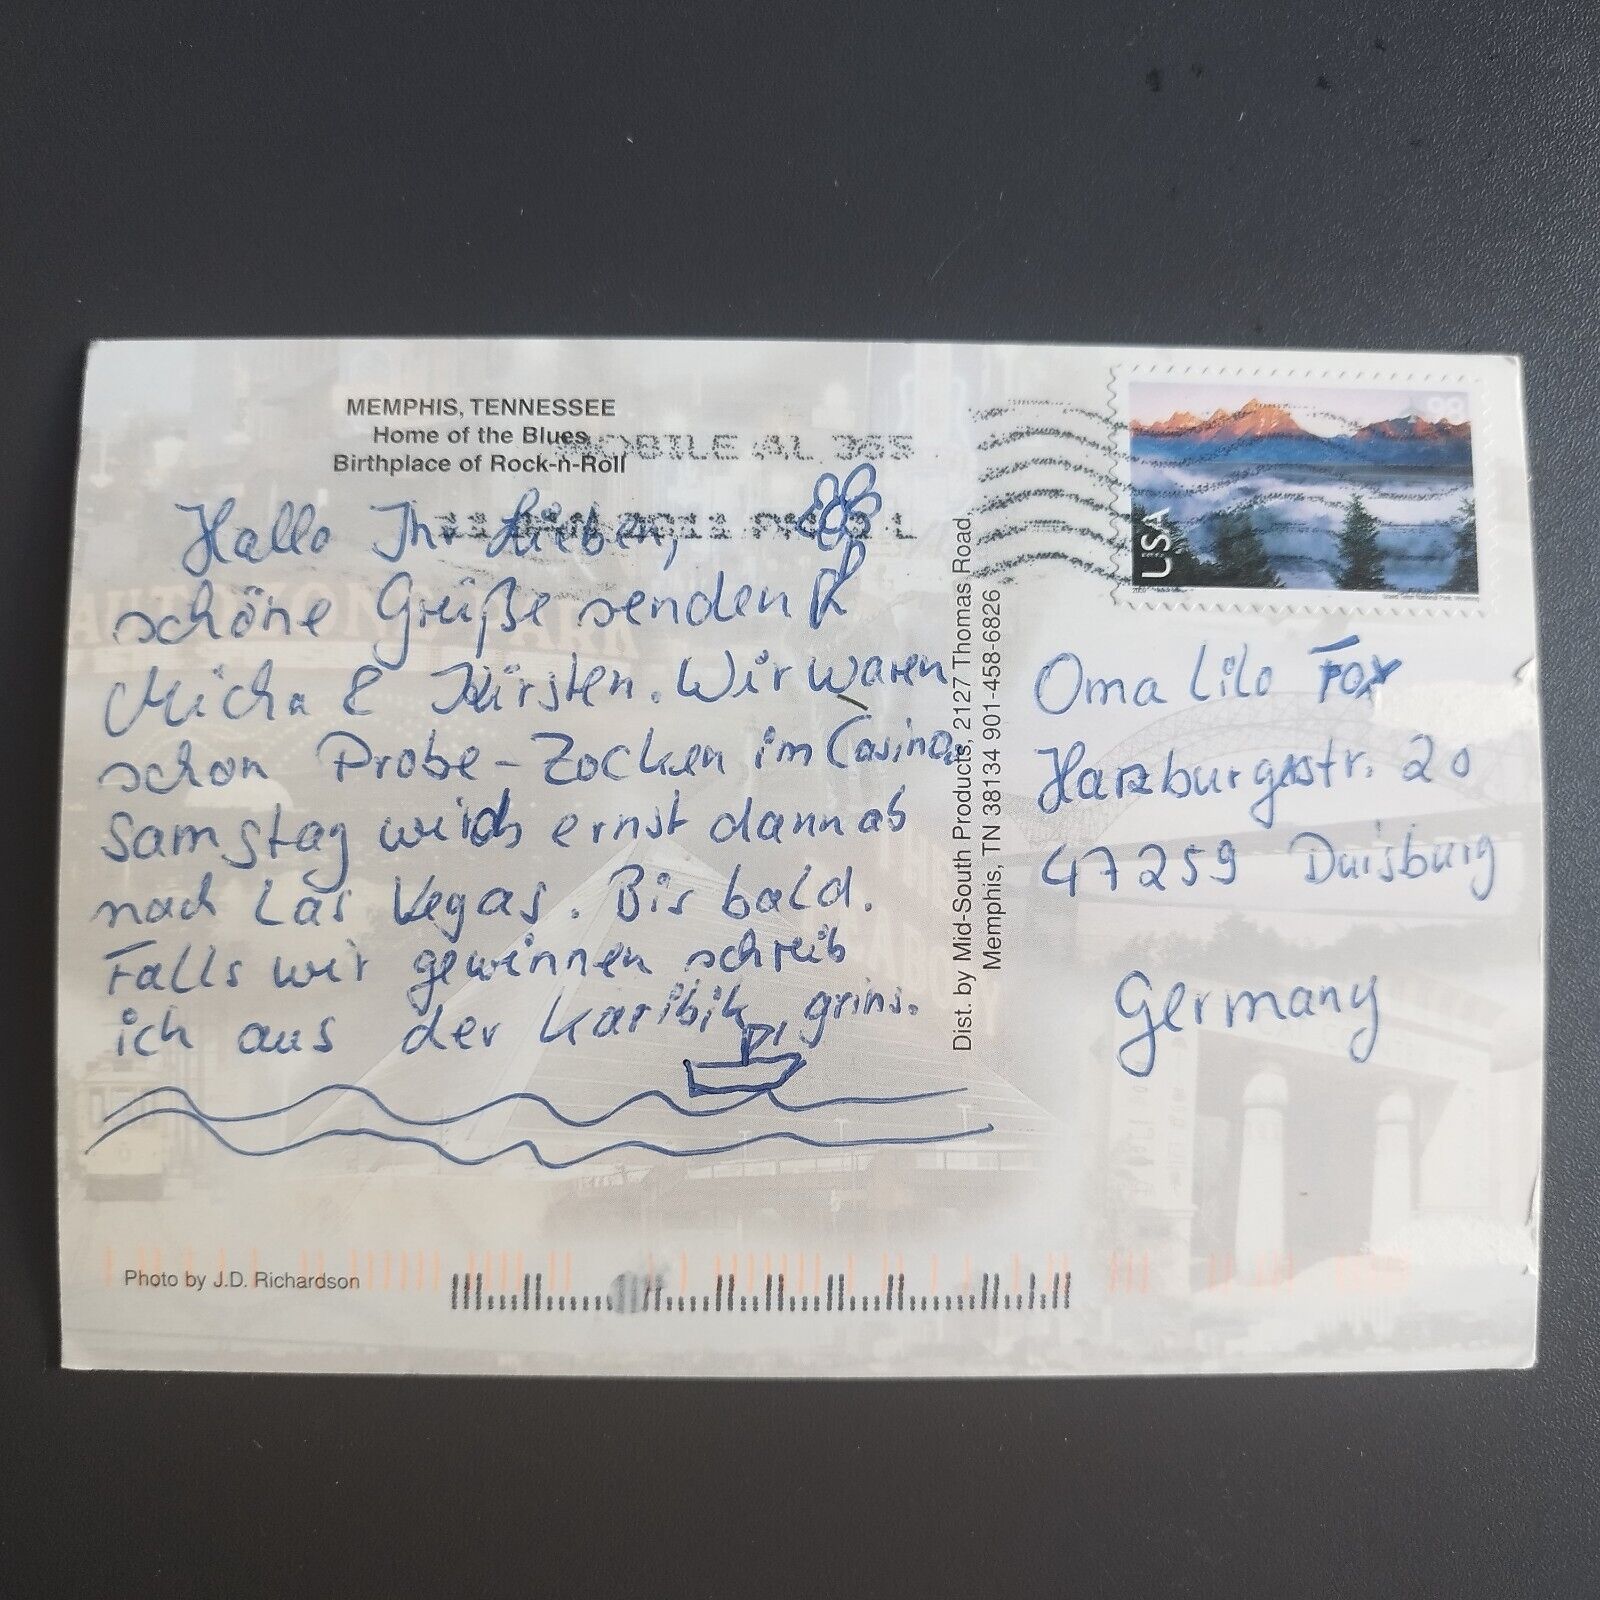 MEMPHIS, TENNESSEE
Home of the Blues
Birthplace of Rock-n-Roll
MOBILE AL 365
11 2011 PM 1 L
Hallo Ihr Lieben,
schöne Grüße senden
Micha & Kirsten. Wir waren
schon Probe-Zocken im Casino.
Samstag wirds ernst dann ab
nach Las Vegas. Bis bald.
Falls wir gewinnen schreib
ich aus der Karibik, grins.
Photo by J.D. Richardson
Dist. by Mid-South Products, 2127 Thomas Road,
Memphis, TN 38134 901-458-6826
98
USA
2009
Oma Lilo Fox
Harzburgstr. 20
47259 Duisburg
Germany